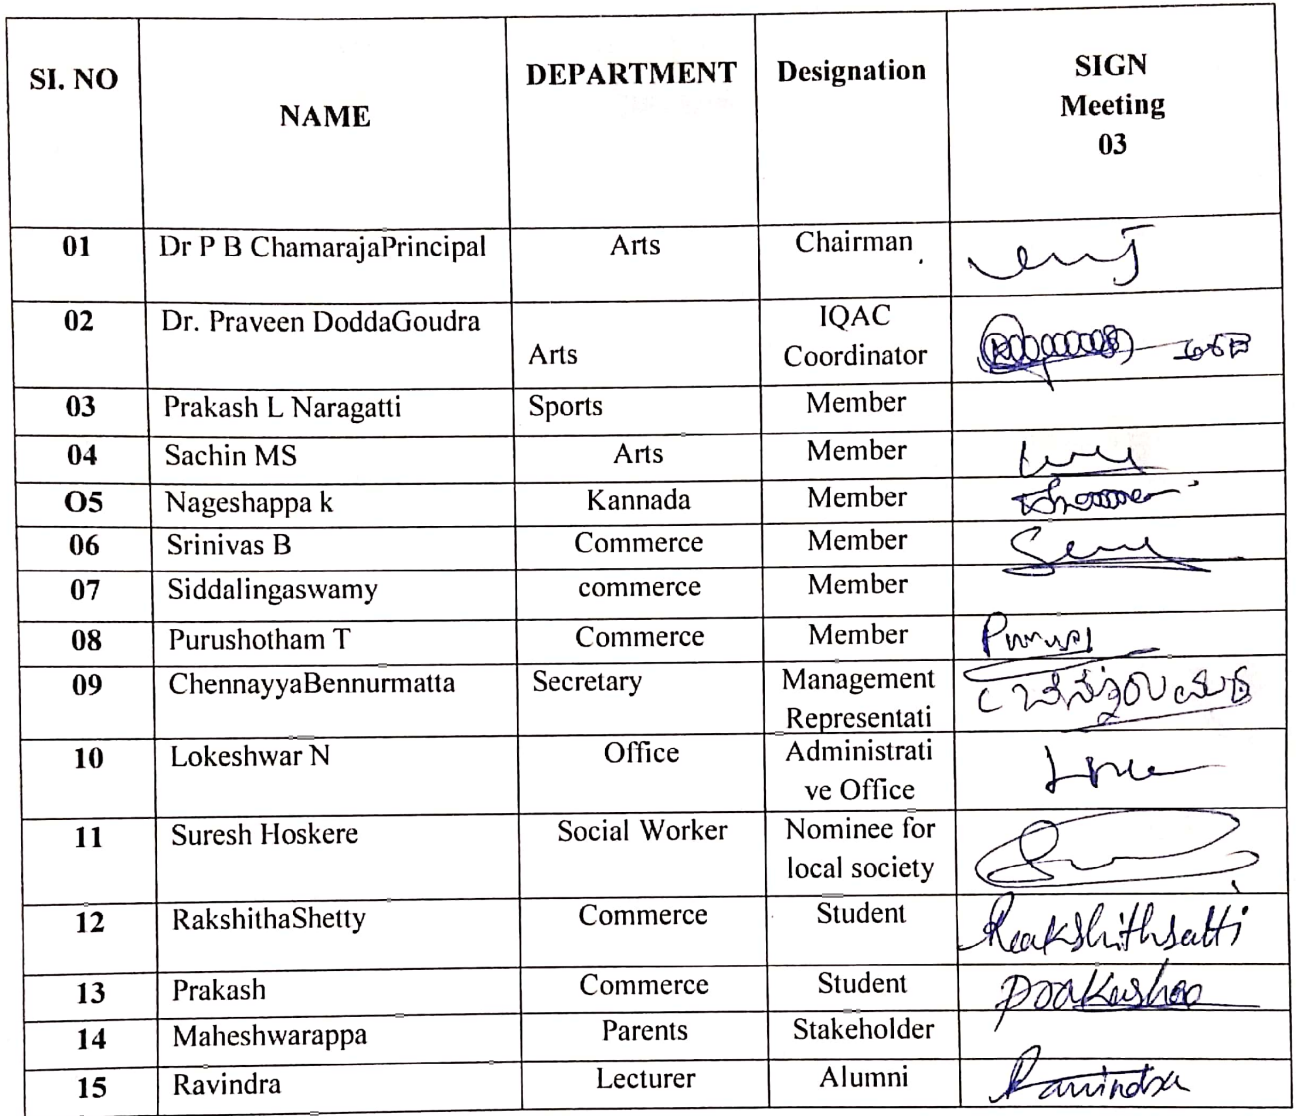 SI. NO
NAME
DEPARTMENT
Designation
SIGN
Meeting
03
01 Dr P B ChamarajaPrincipal Arts Chairman
02 Dr. Praveen DoddaGoudra Arts IQAC
Coordinator
03 Prakash L Naragatti Sports Member
04 Sachin MS Arts Member
O5 Nageshappa k Kannada Member
06 Srinivas B Commerce Member
07 Siddalingaswamy commerce Member
08 Purushotham T Commerce Member
09 ChennayyaBennurmatta Secretary Management
Representati
10 Lokeshwar N Office Administrati
ve Office
11 Suresh Hoskere Social Worker Nominee for
local society
12 RakshithaShetty Commerce Student
13 Prakash Commerce Student
14 Maheshwarappa Parents Stakeholder
15 Ravindra Lecturer Alumni Ravindra